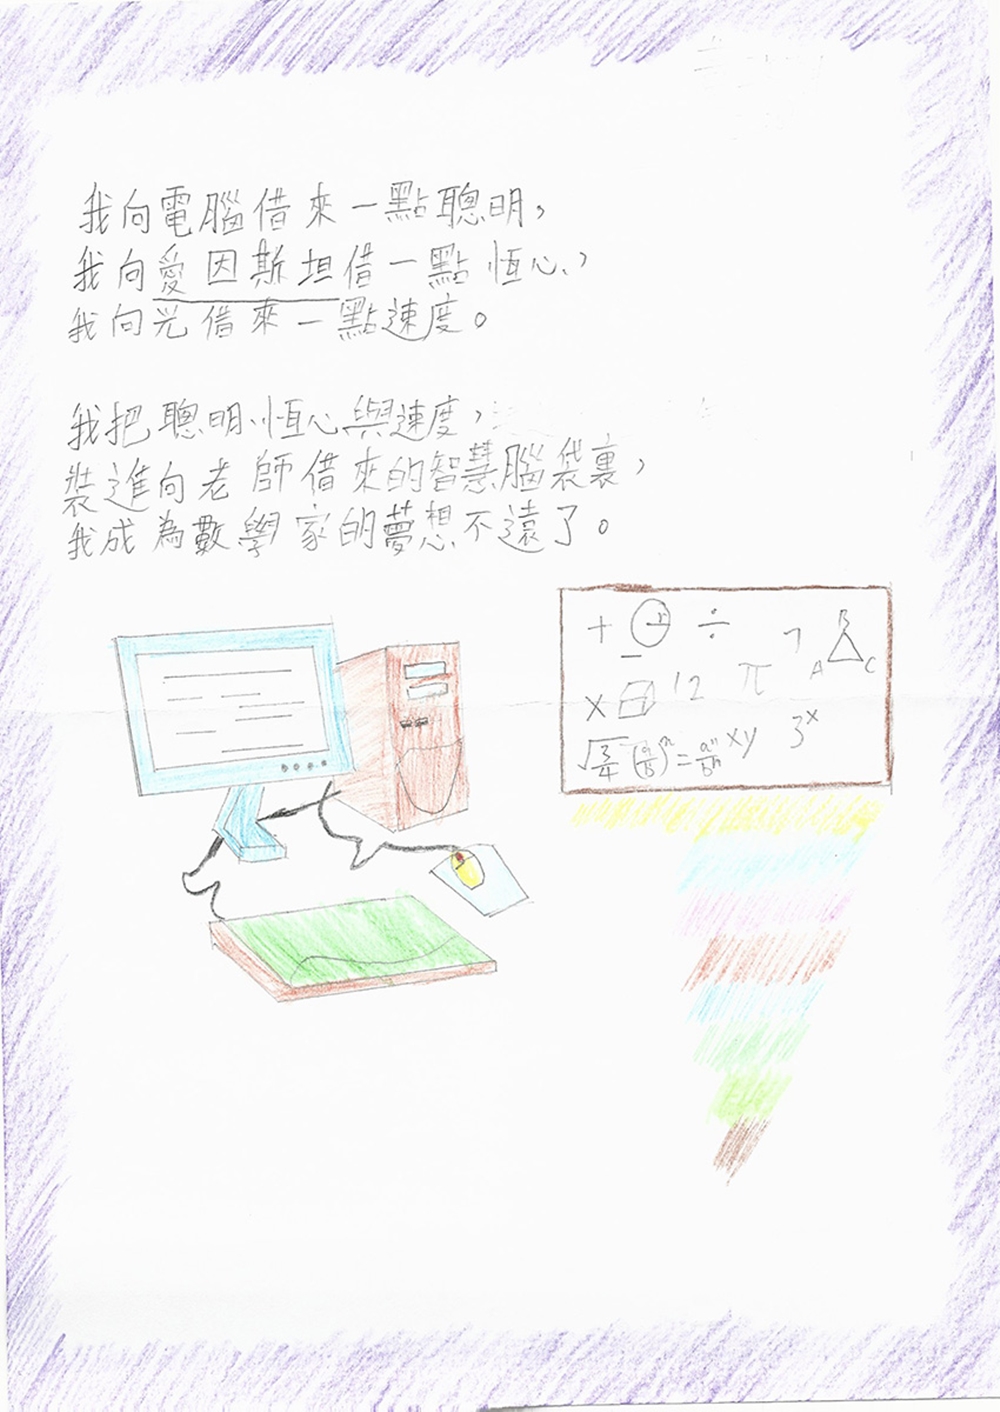 我向電腦借來一點聰明，
我向愛因斯坦借一點恆心，
我向光借來一點速度。
我把聰明、恆心與速度，
裝進向老師借來的智慧腦袋裏，
我成為數學家的夢想不遠了。
+ r ÷
B
A C
× 12 π
xy 3ˣ